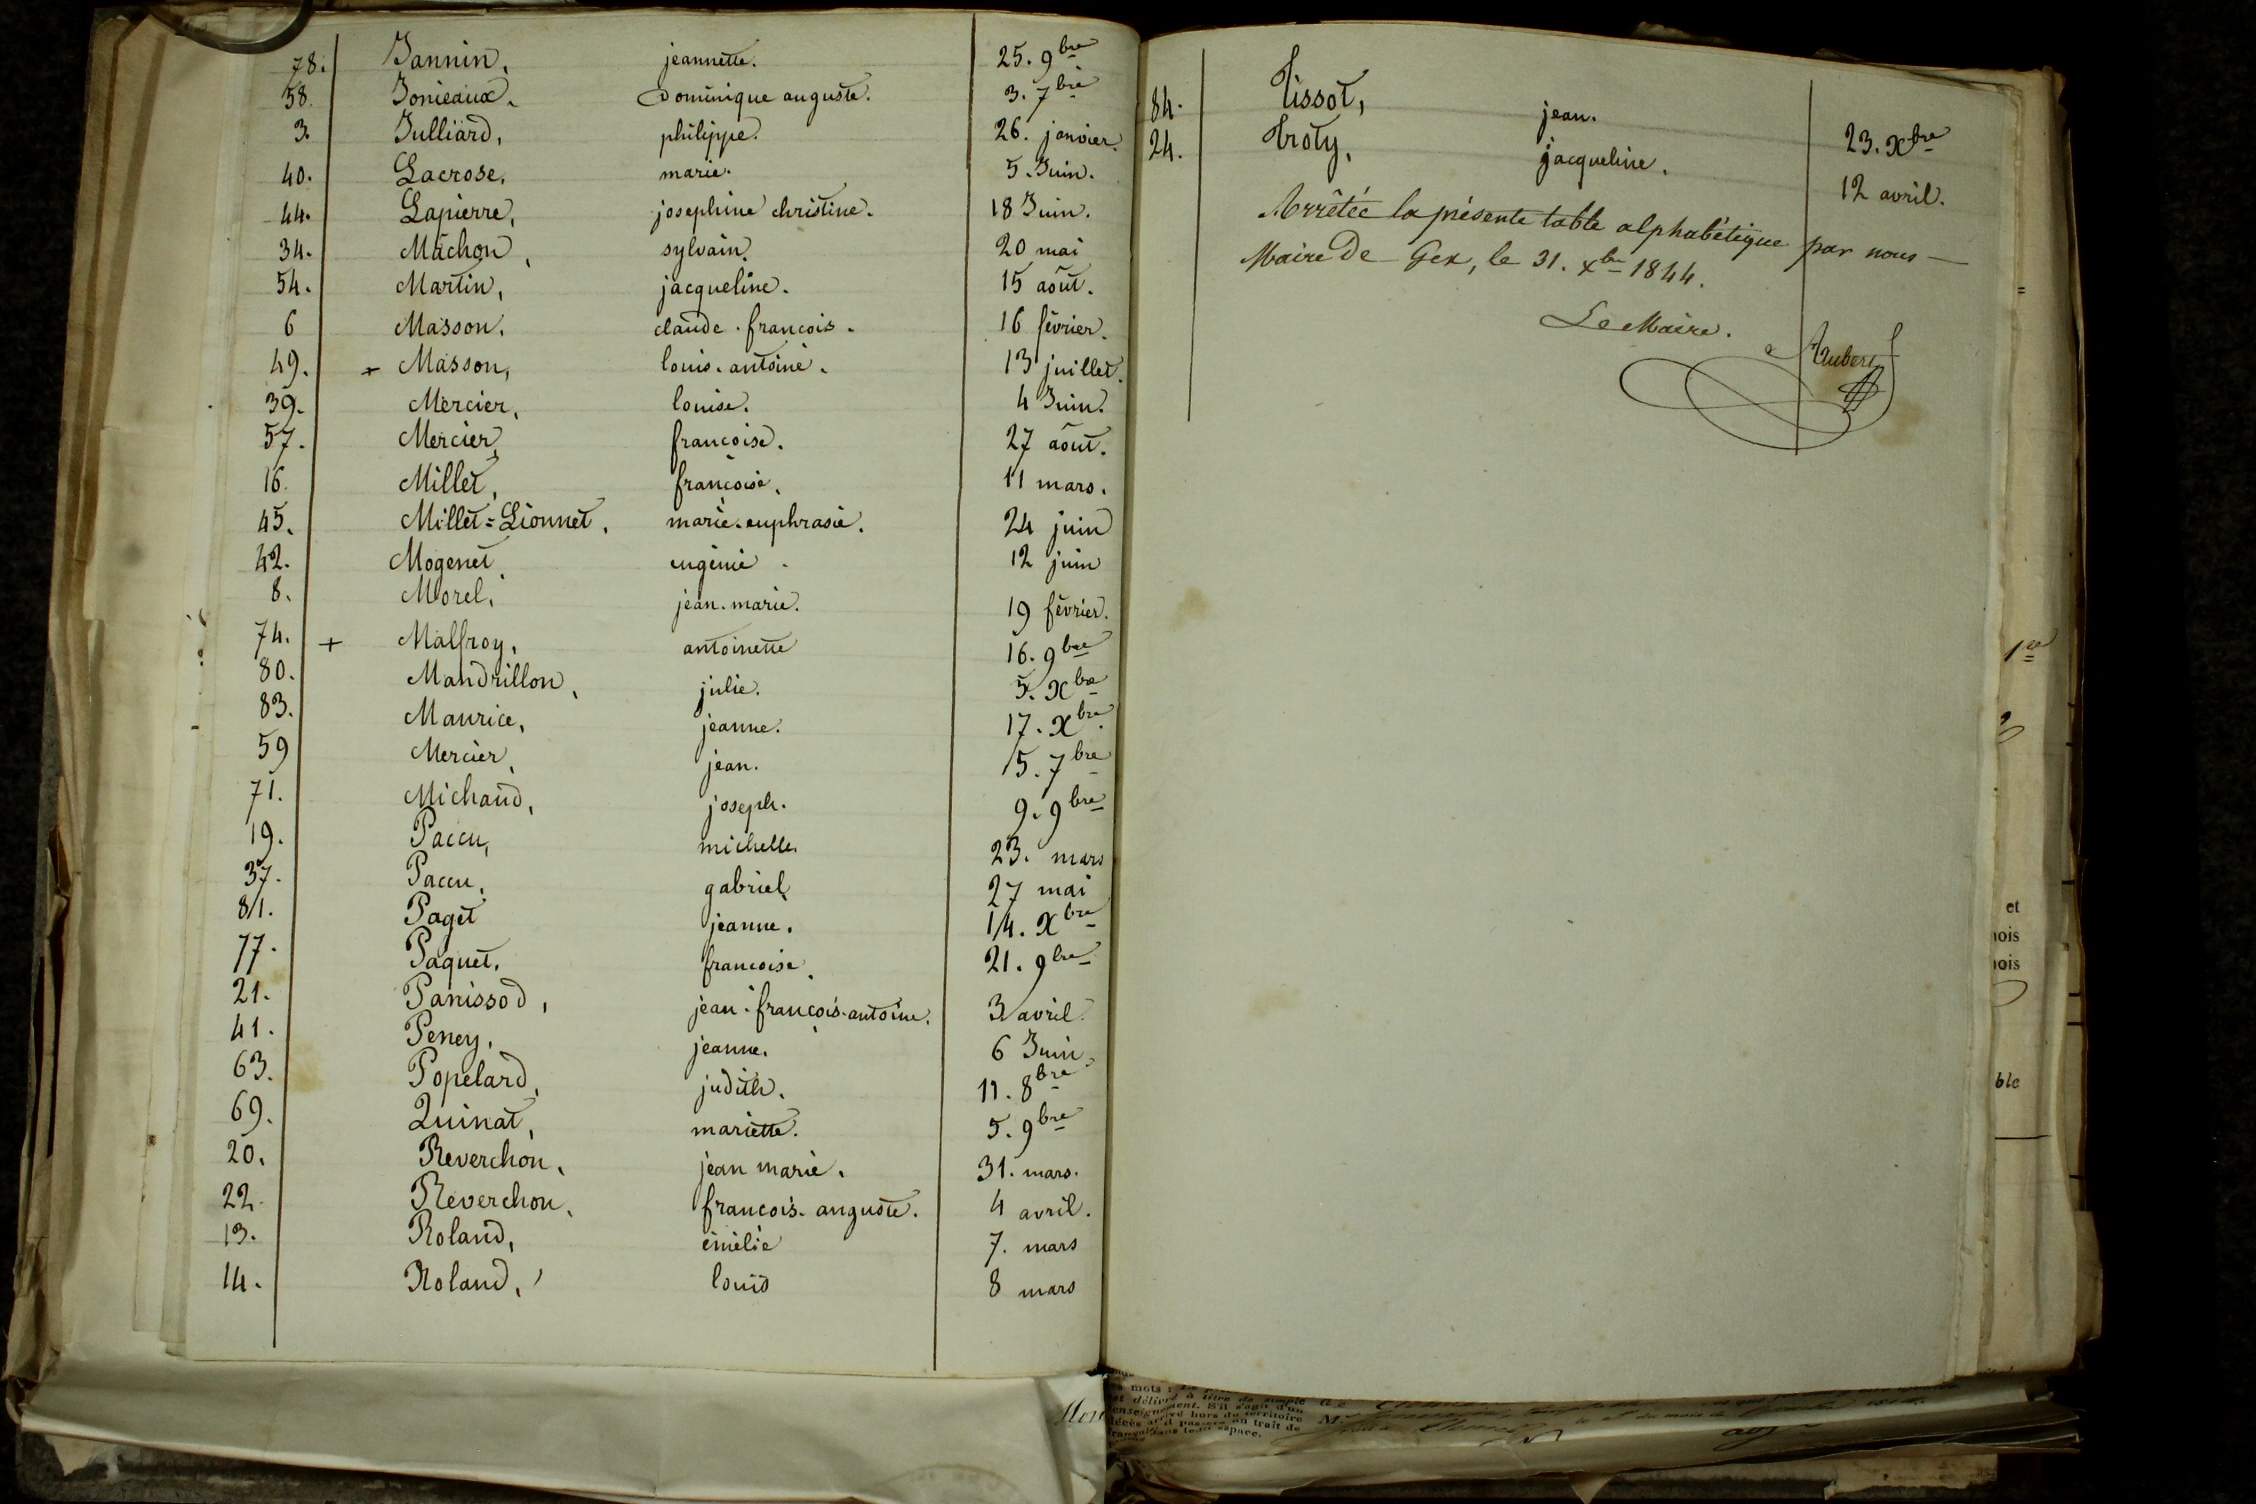 78. Jannin, jeannette. 25. 9bre
58. Jonieaux, Dominique auguste. 3. 7bre
3. Julliard, philippe. 26. janvier.
40. Lacrose, marie. 5. Juin.
44. Lapierre, josephine christine. 18 Juin.
34. Machon, sylvain. 20 mai
54. Martin, jacqueline. 15 août.
6 Masson, claude. francois. 16 février.
49. + Masson, louis. antoine. 13 juillet.
39. Mercier, louise. 4 Juin.
57. Mercier, francoise. 27 août.
16. Millet, francoise. 11 mars.
45. Millet=Lionnet, marie.euphrasie. 24 juin
42. Mogenet eugénie. 12 juin
8. Morel, jean.marie. 19 février.
74. + Malfroy, antoinette 16. 9bre
80. Mandrillon, julie. 5. Xbre
83. Maurice, jeanne. 17. Xbre
59 Mercier, jean. 5. 7bre
71. Michaud, joseph. 9. 9bre
19. Paccu, michelle 23. mars
37. Paccu, gabriel 27 mai
81. Paget jeanne. 14. Xbre
77. Paquet, francoise. 21. 9bre
21. Panissod, jean.françois.antoine. 3 avril.
41. Peney, jeanne. 6 Juin.
63. Popelard, judith. 11. 8bre
69. Quinat, mariette. 5. 9bre
20. Reverchon, jean marie. 31. mars.
22. Reverchon, francois. auguste. 4 avril.
13. Roland, émélie 7. mars
14. Roland, louis 8 mars
84. Tissot, jean. 23. Xbre
24. Troty, jacqueline. 12 avril.
Arrêtée la présente table alphabétique par nous
Maire De Gex, le 31. xbre 1844.
Le Maire.
Aubert
1re
et
nois
nois
ble